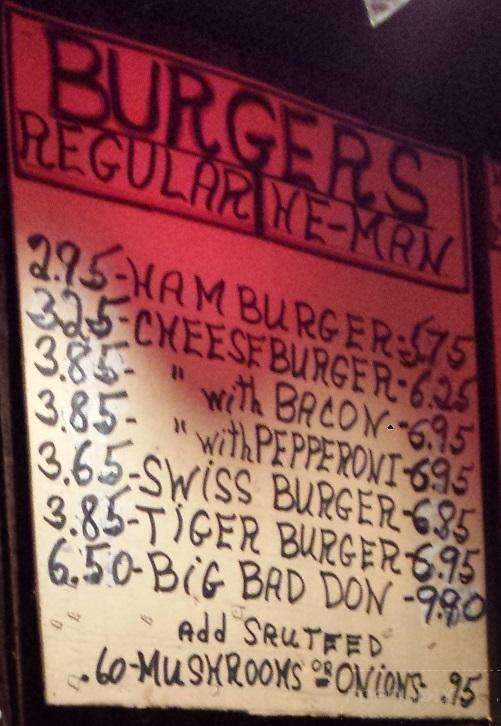 BURGERS
REGULAR HE-MAN
2.95-HAMBURGER-5.75
3.25-CHEESEBURGER-6.25
3.85- " with BACON-6.95
3.85- " with PEPPERONI-6.95
3.65-SWiSS BURGER-6.85
3.85-TiGER BURGER-6.95
6.50-BiG BAD DON -9.90
Add SAUTEED
.60-MUSHROOMS OR ONiONS- .95